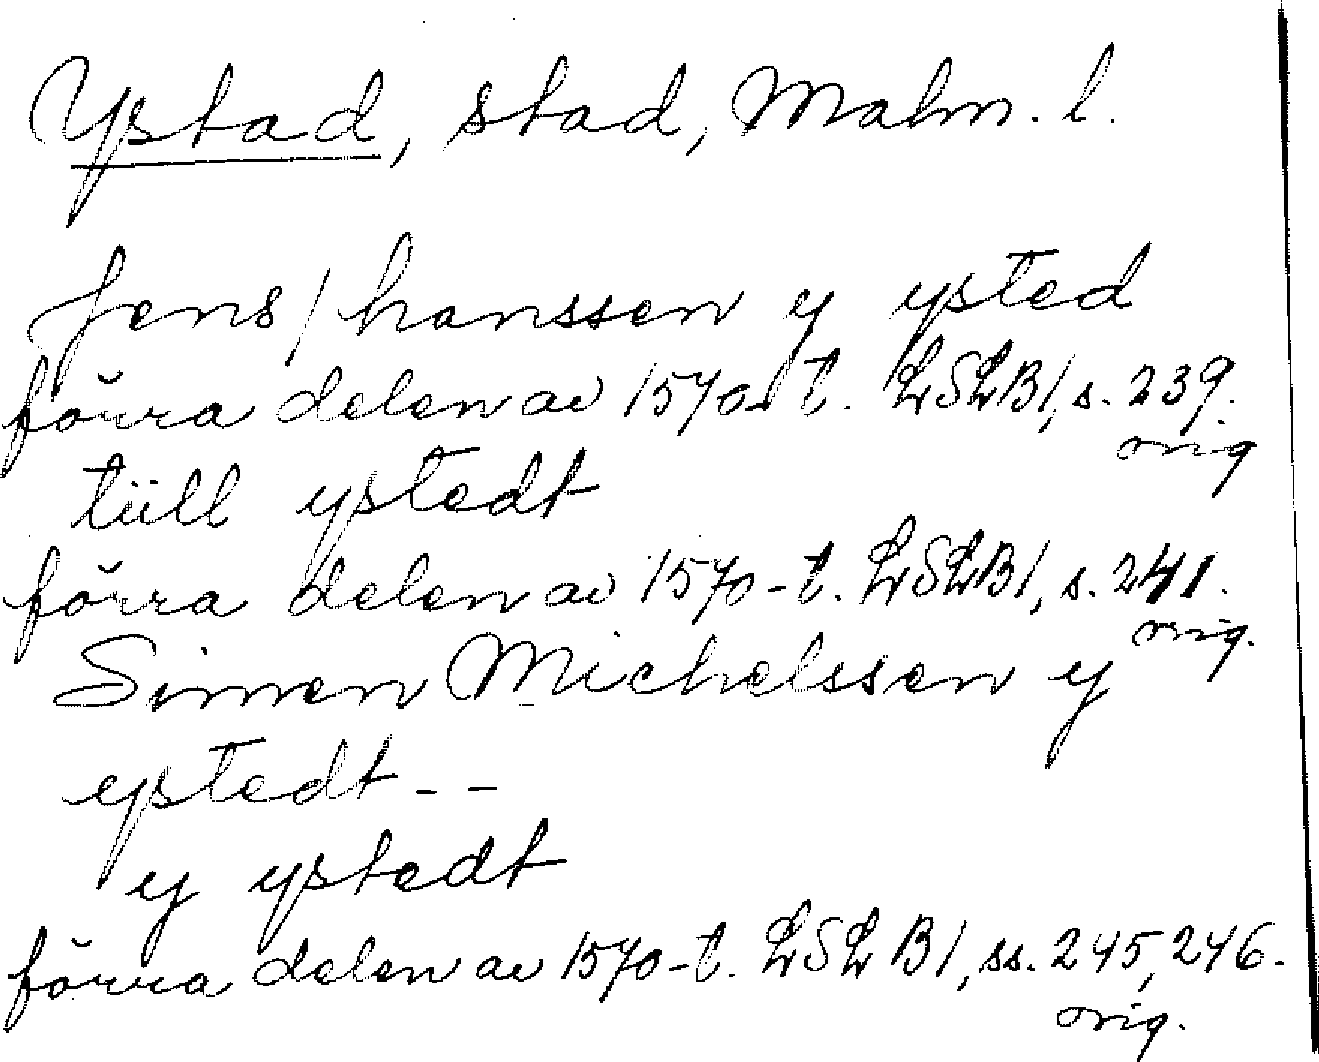 Ystad, stad, Malm. l.
Jens / hanssen y ysted
förra delen av 1570-t. LSLB1, s. 239.
orig
tiill ystedt
förra delen av 1570-t. LSLB1, s. 241.
orig.
Simen Michelssen y
ystedt - -
y ystedt
förra delen av 1570-t. LSLB1, ss. 245, 246.
orig.